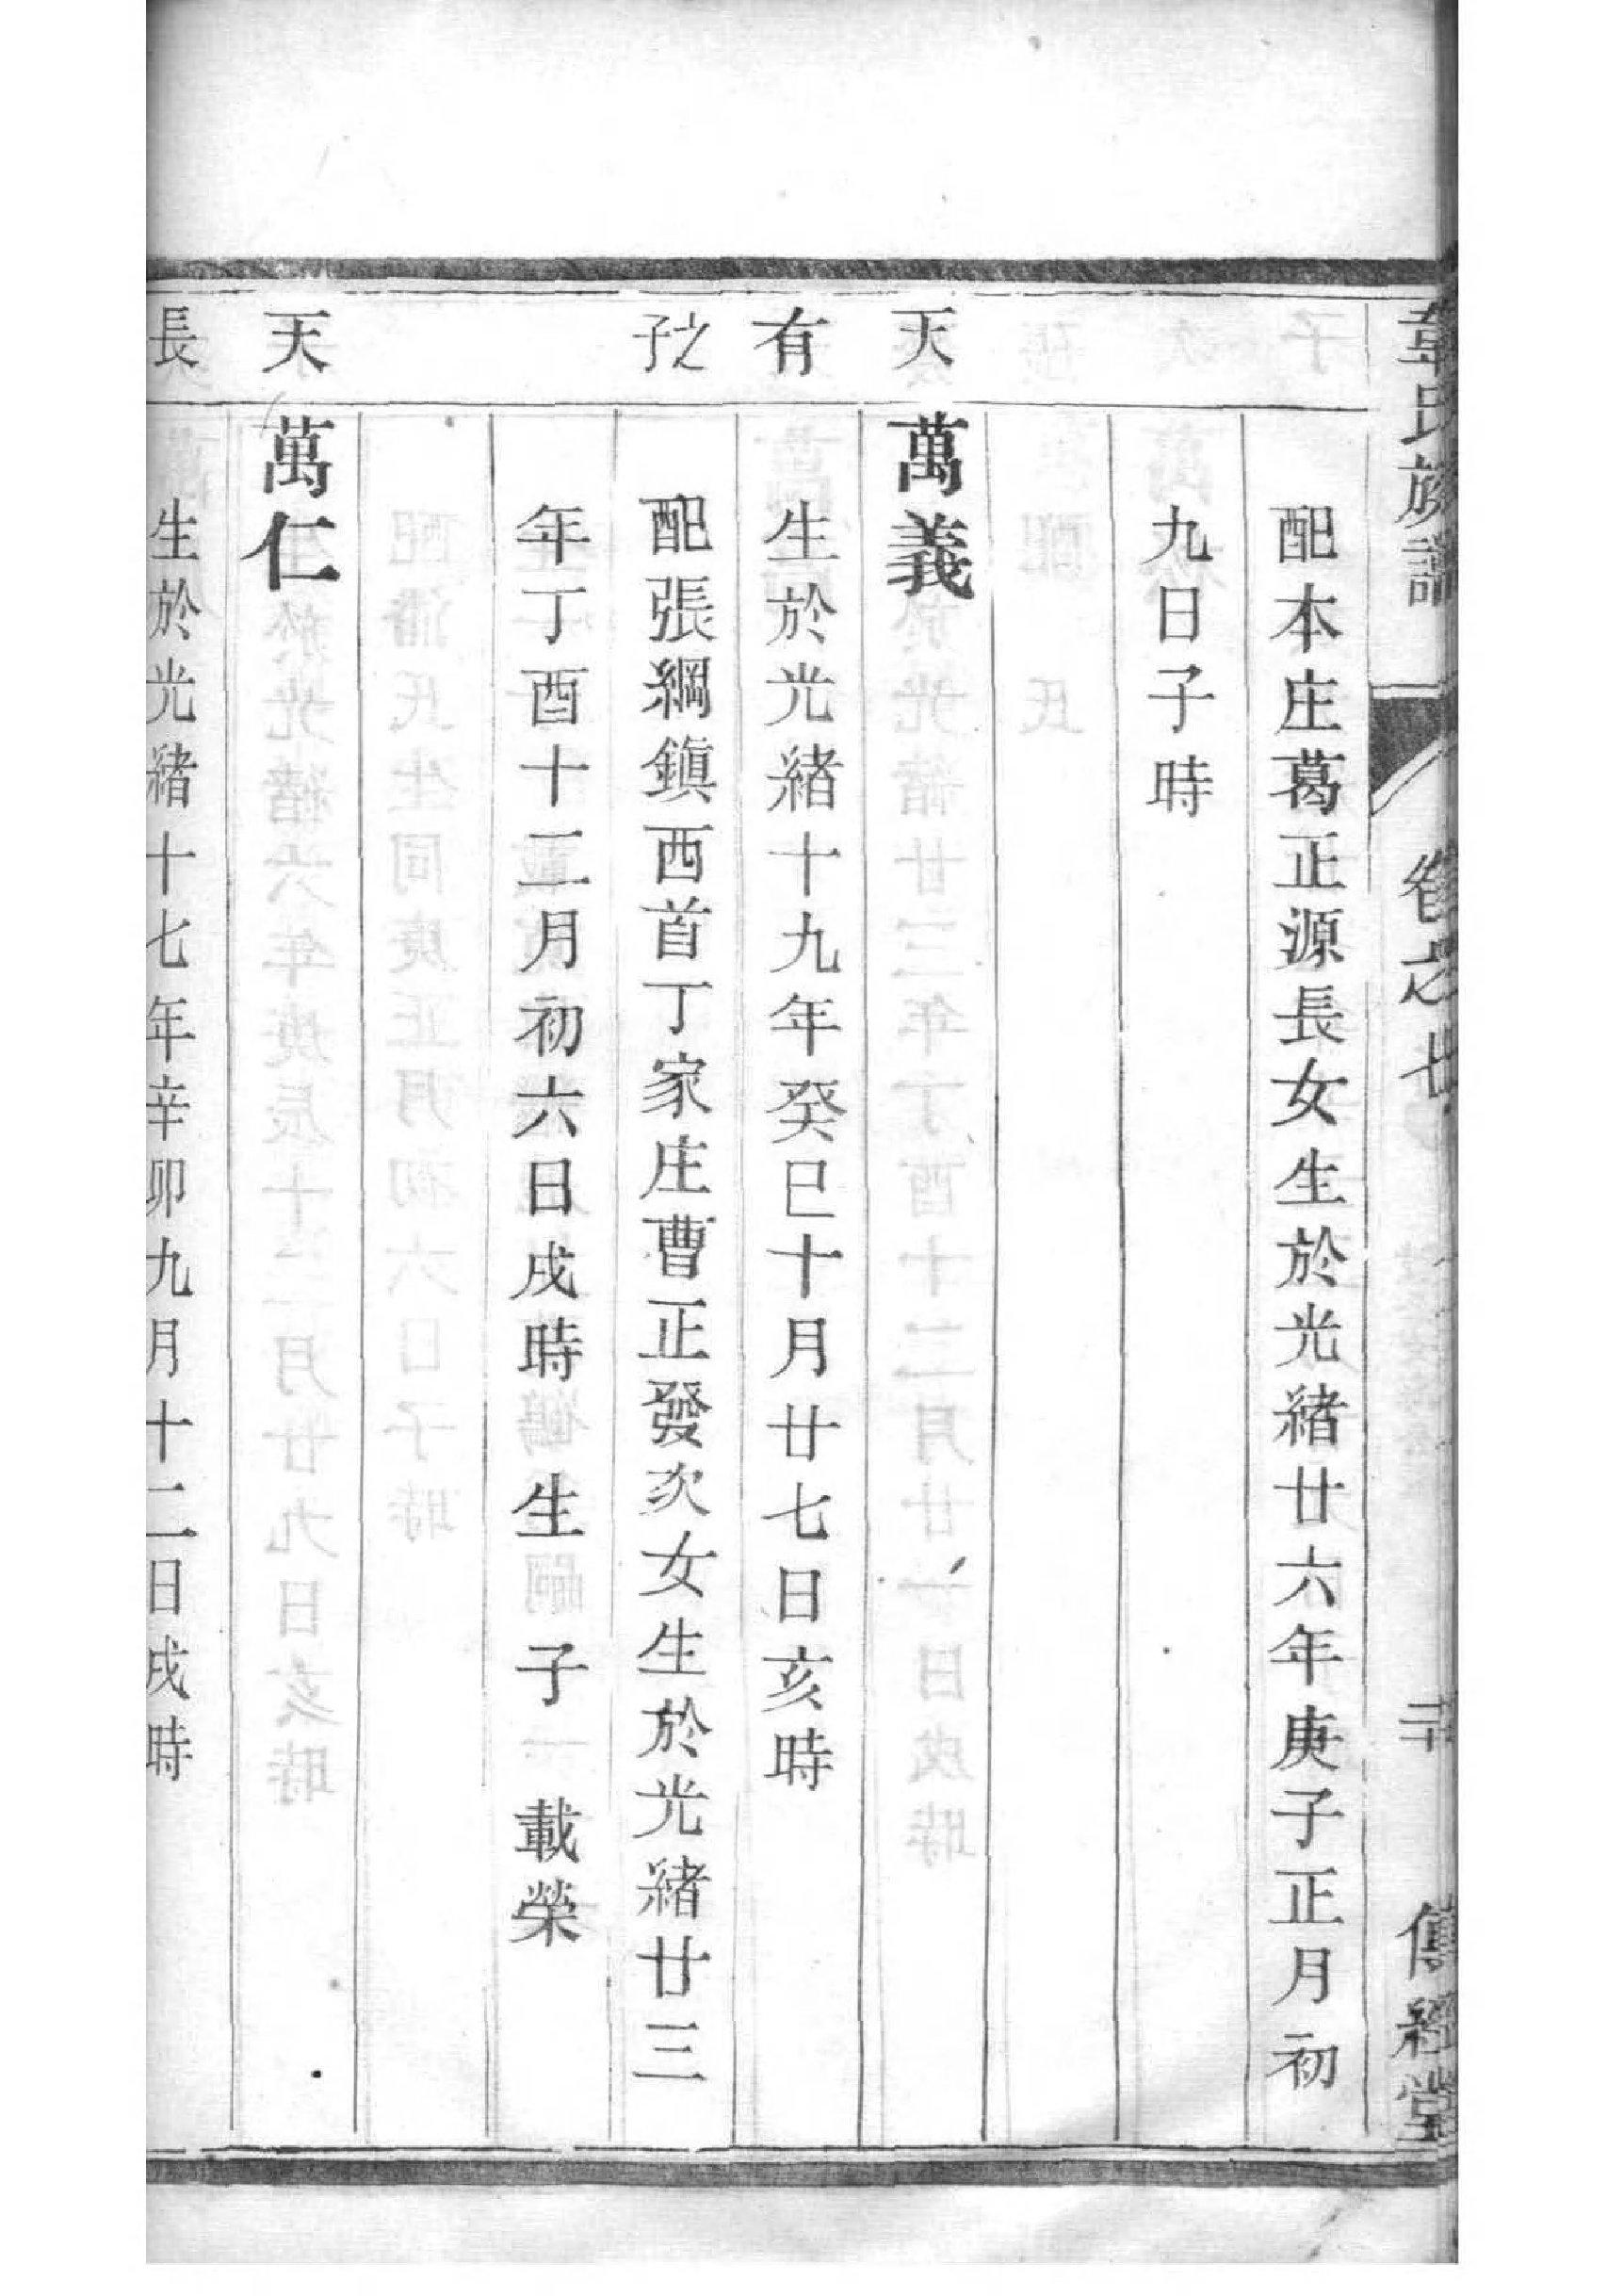 韋氏族譜 卷之 二十 傳經堂
配本庄葛正源長女生於光緒廿六年庚子正月初
九日子時
天 萬義
有 生於光緒十九年癸巳十月廿七日亥時
之子 配張綱鎭西首丁家庄曹正發次女生於光緒廿三
年丁酉十二月初六日戌時 生 子 載榮
天 萬仁
長 生於光緒十七年辛卯九月十二日戌時